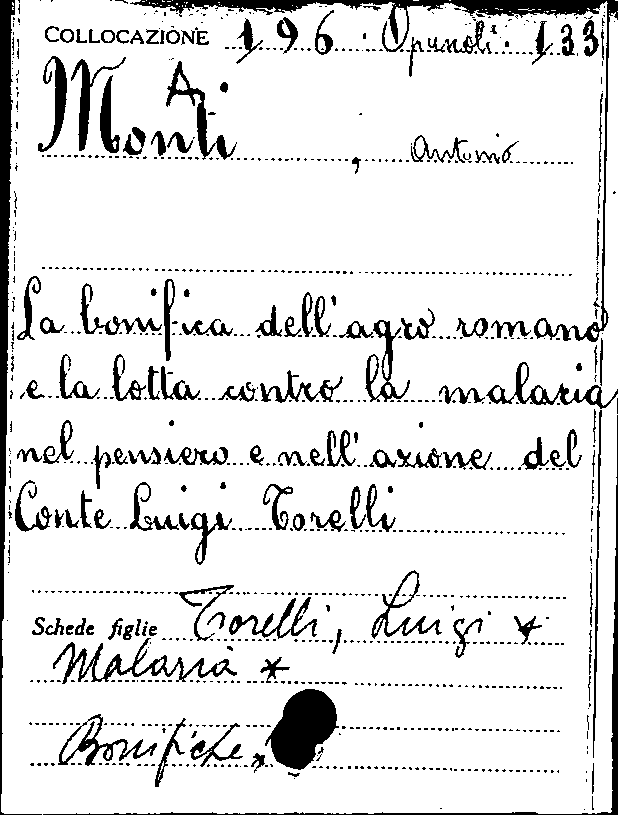 COLLOCAZIONE 196. Opuscoli. 133
A
Monti, Antonio
La bonifica dell'agro romano
e la lotta contro la malaria
nel pensiero e nell'azione del
Conte Luigi Torelli
Schede figlie Torelli, Luigi *
Malaria *
Bonifiche *